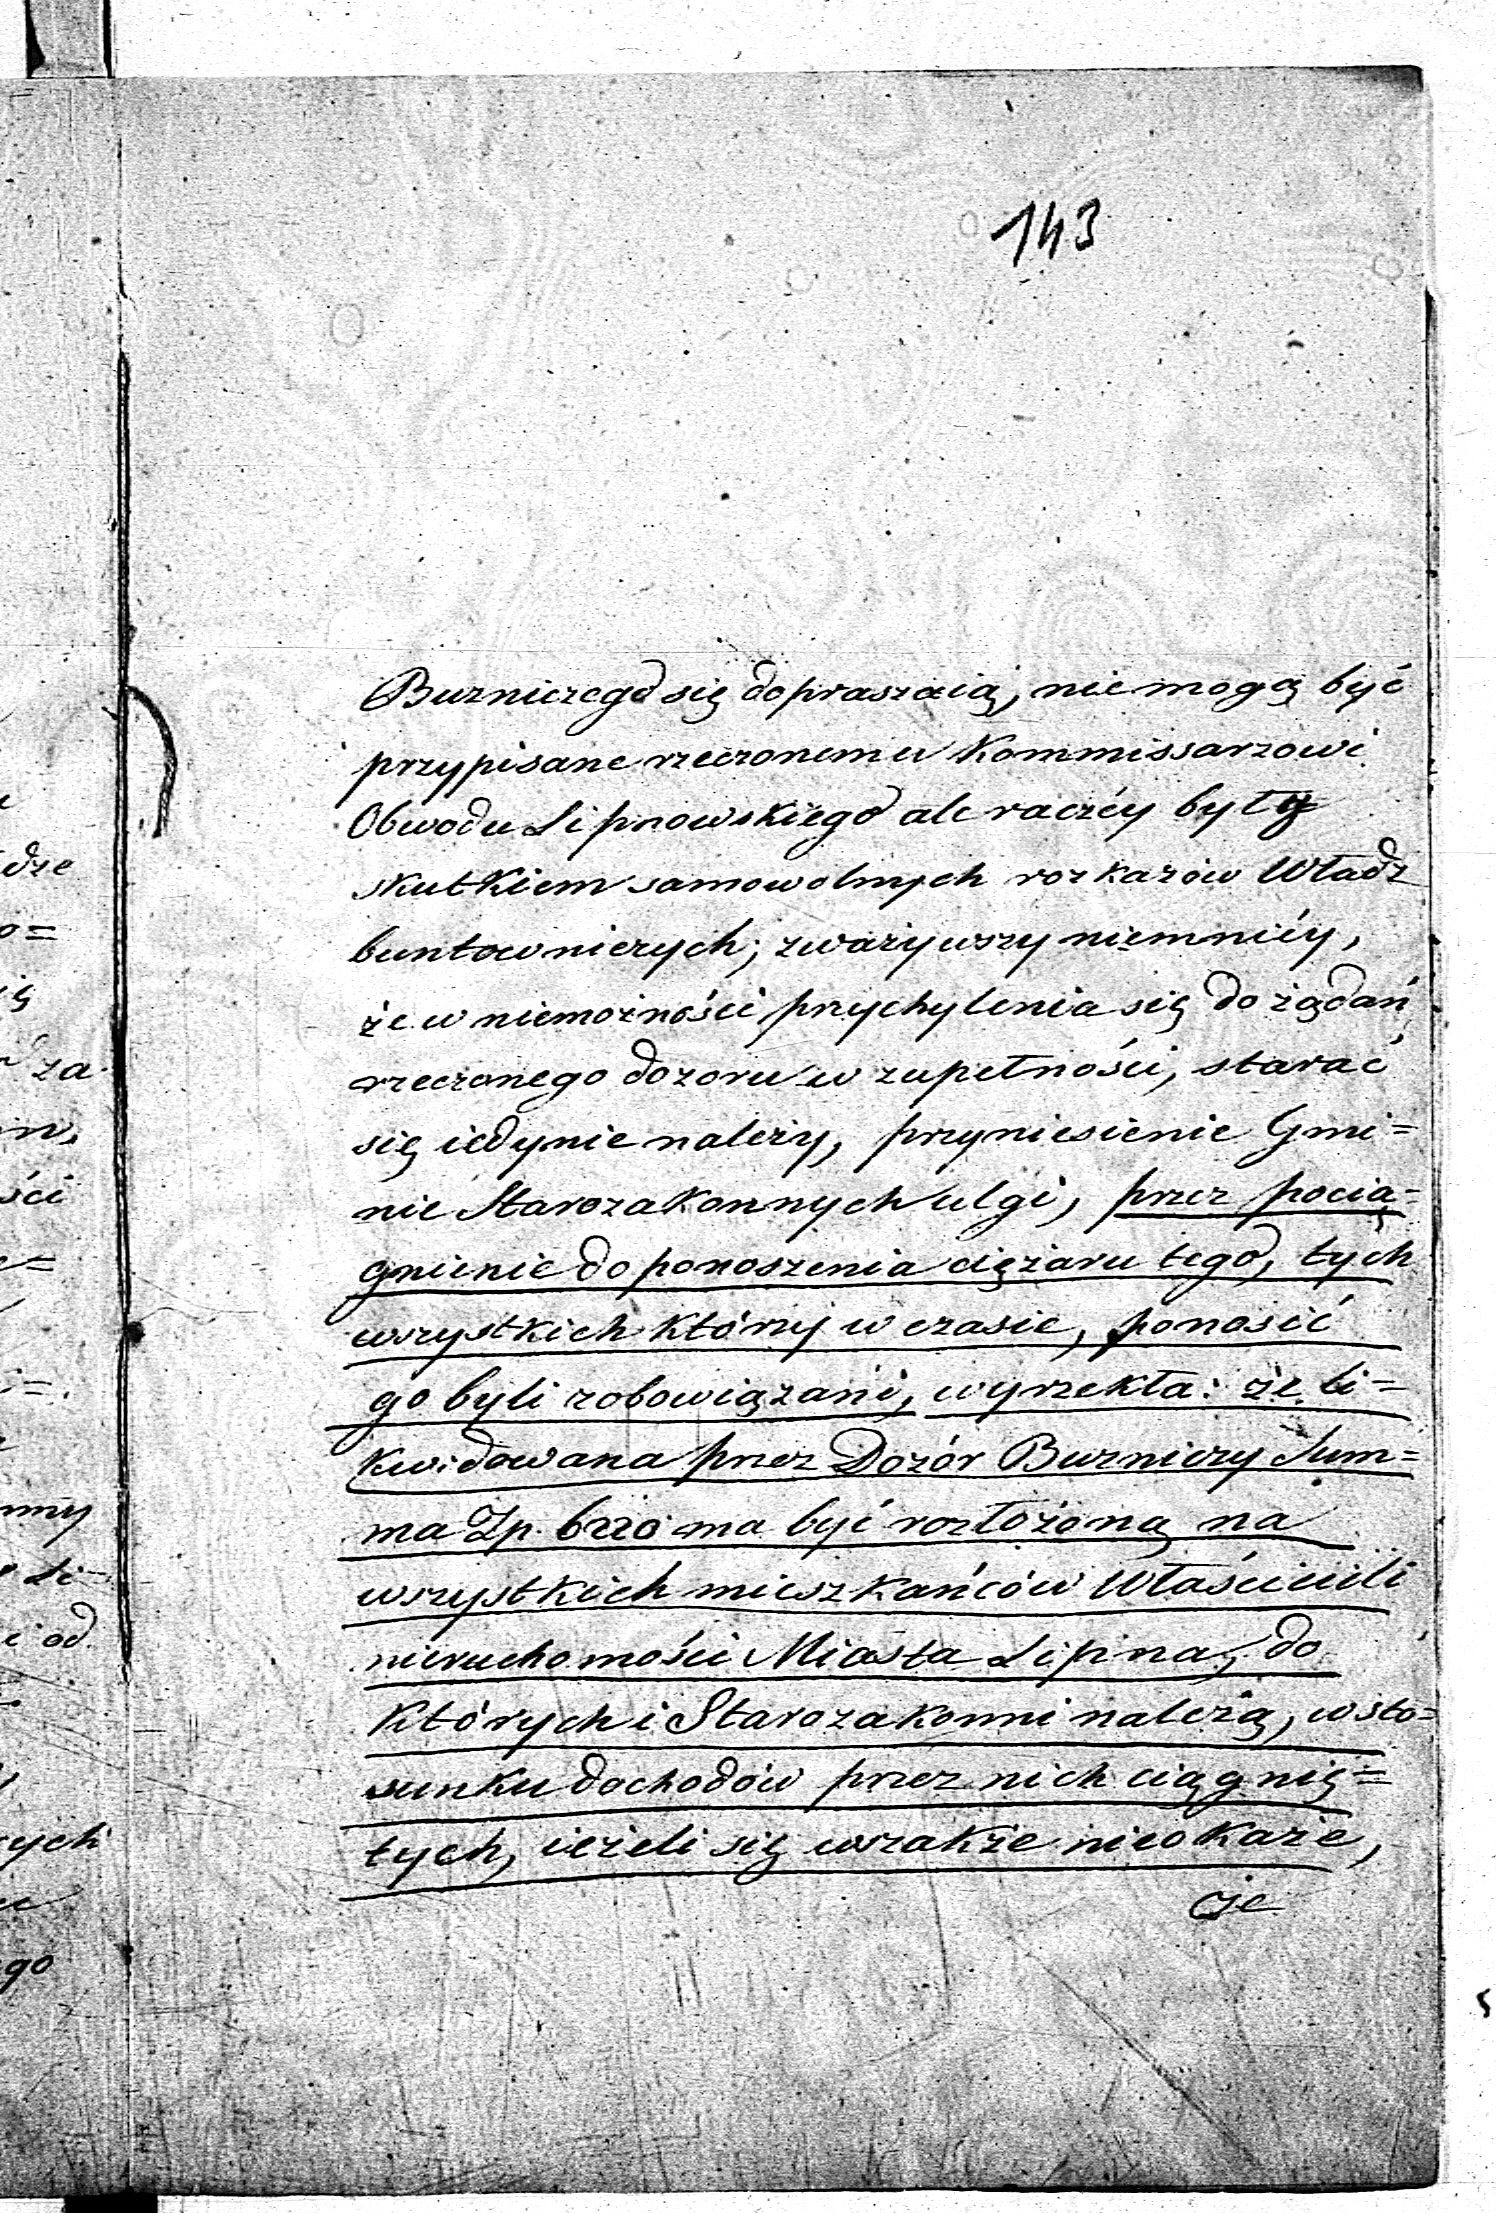 143
Buzniczego się dopraszaią, nie mogą być
przypisane rzeczonemu Kommissarzowi
Obwodu Lipnowskiego ale raczéy były
skutkiem samowolnych rozkazów Władz
buntowniczych; zważywszy niemniéy,
że w niemożności przychylenia się do żądań
rzeczonego dozoru w zupełności, starać
się iedynie należy, przyniesienie Gmi=
nie Starozakonnych ulgi, przez pocią=
gnienie do ponoszenia ciężaru tego, tych
wszystkich którzy w czasie, ponosić
go byli zobowiązani, wyrzekła: że li=
kwidowana przez Dozór Buzniczy Sum=
ma Zp. 6220 ma być rozłożoną na
wszystkich mieszkańców Właścicieli
nieruchomości Miasta Lipna, do
których i Starozakonni należą, w sto=
sunku dochodów przez nich ciągnię=
tych, ieżeli się wszakże nieokaże,
że
dze
o=
za
ści
nny
i od
ych
go